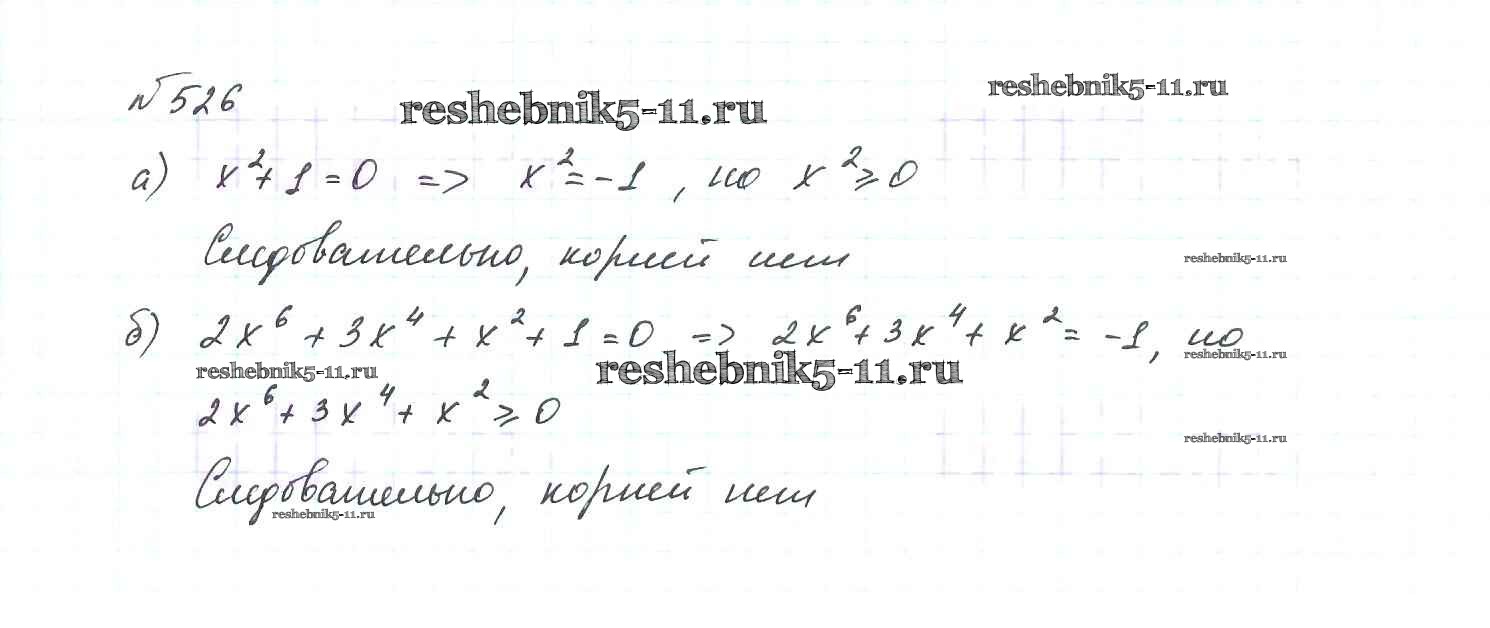 №526
reshebnik5-11.ru
reshebnik5-11.ru
а) x²+1=0 => x²=-1, но x²≥0
Следовательно, корней нет
reshebnik5-11.ru
б) 2x⁶+3x⁴+x²+1=0 => 2x⁶+3x⁴+x²=-1, но
reshebnik5-11.ru
reshebnik5-11.ru
reshebnik5-11.ru
2x⁶+3x⁴+x²≥0
reshebnik5-11.ru
Следовательно, корней нет
reshebnik5-11.ru